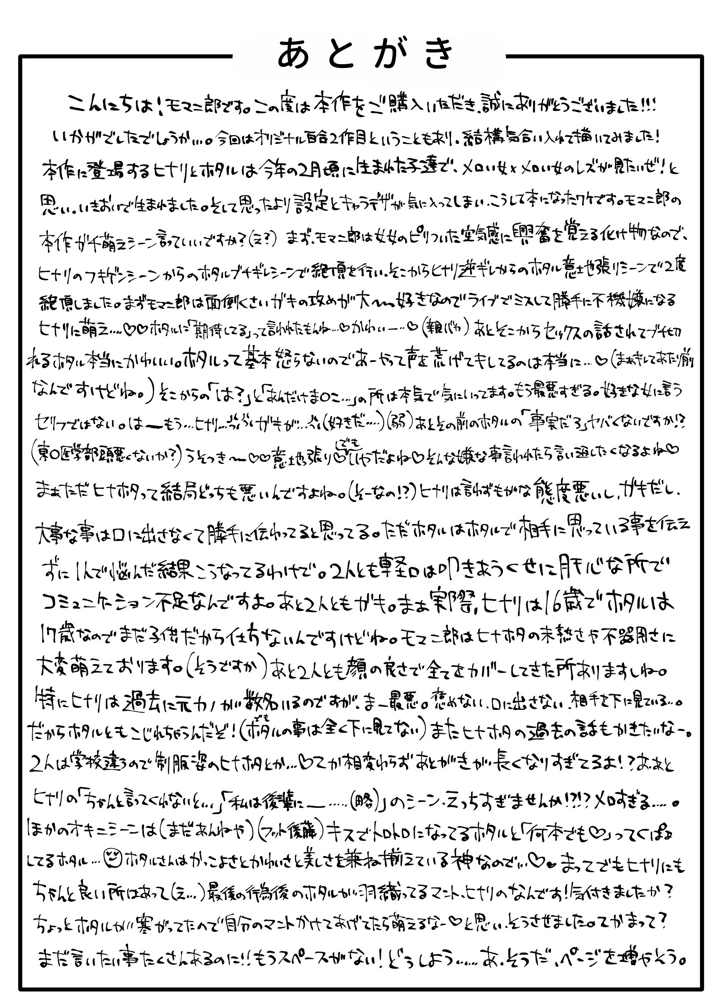 あとがき
こんにちは!モマニ郎です。この度は本作をご購入いただき、誠にありがとうございました!!!
いかがでしたでしょうか...。今回はオリジナル百合2作目ということもあり、結構気合い入れて描いてみました!
本作に登場するヒナリとホタルは今年の2月頃に生まれた子達で、メロい女×メロい女のレズが見たいぜ!と
思い、いきおいで生まれました。そして思ったより設定とキャラデザが気に入ってしまい、こうして本になったワケです。モマニ郎の
本作が千萌えシーン言っていいですか?(え?) まず、モマニ郎は女女のピリついた空気感に興奮を覚える化け物なので、
ヒナリのフキゲンシーンからのホタルブチギレシーンで絶頂を行い、そこからヒナリ逆ギレからのホタル意地張りシーンで2度
絶頂しました。まずモマニ郎は面倒くさいガキの攻めが大〜〜好きなのでライブでミスして勝手に不機嫌になる
ヒナリに萌え...♡♡ホタルに「期待してる」って言われたもんね...♡かわい〜…♡(親バカ)あとそこからセックスの話されてブチ切
れるホタル本当にかわいい。ホタルって基本怒らないのであーやって声を荒げてキレてるのは本当に...♡(まぁキレてあたり前
なんですけどね。)そこからの「は?」と「あんだけま○こ...」の所は本気で気にいってます。もう最悪すぎる。好きな女に言う
セリフではない。は〜もう...ヒナリ...ガキが...(好きだ....)(弱)あとその前のホタルの「事実だろ」ヤバくないですか!?
(東○医学部頭悪くないか?)うそっき〜♡♡意地張り♡でもいやだよね♡そんな嫌な事言われたら言い返したくなるよね♡
まぁただヒナホタって結局どっちも悪いんですよね。(そーなの!?)ヒナリは言わずもがな態度悪いし、ガキだし、
大事な事は口に出さなくて勝手に伝わってると思ってる。ただホタルはホタルで相手に思っている事を伝え
ずに1人で悩んだ結果こうなってるわけで。2人とも軽口は叩きあうくせに肝心な所で
コミュニケーション不足なんですよ。あと2人ともガキ。まぁ実際、ヒナリは16歳でホタルは
17歳なのでまだ子供だから仕方ないんですけどね。モマニ郎はヒナホタの未熟さや不器用さに
大変萌えております。(そうですか)あと2人とも顔の良さで全てをカバーしてきた所ありますしね。
特にヒナリは過去に元カノが数名いるのですが、まー最悪。褒めない、口に出さない、相手を下に見ている...。
だからホタルともこじれちゃうんだぞ!(でもホタルの事は全く下に見てない)またヒナホタの過去の話もかきたいなー。
2人は学校違うので制服姿のヒナホタとか...♡てか相変わらずあとがきが長くなりすぎてるよ!?ああと
ヒナリの「ちゃんと言ってくれないと...」「私は後輩に―....(略)」のシーン、えっちすぎませんか!?!?メロすぎる....。
ほかのオキニシーンは(まだあんねや)(フット後藤)キスでトロトロになってるホタルと「何本でも♡」ってくぱぁ
してるホタル...ホタルさんはかっこよさとかわいさと美しさを兼ね揃えている神なので...♡♥まってでもヒナリにも
ちゃんと良い所はあって(え...)最後の行為後のホタルが羽織ってるマント、ヒナリのなんです!気付きましたか?
ちょっとホタルが寒がってたので自分のマントかけてあげてたら萌えるなー♡と思い、そうさせました。てかまって?
まだ言いたい事たくさんあるのに!!もうスペースがない!どうしよう.....あ、そうだ、ページを増やそう。